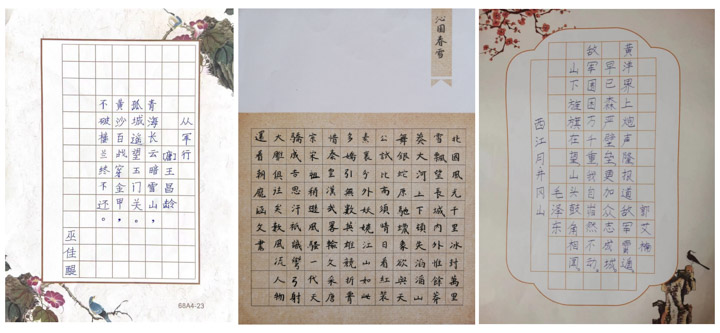 从军行
[唐]王昌龄
青海长云暗雪山，
孤城遥望玉门关。
黄沙百战穿金甲，
不破楼兰终不还。
68A4-23
沁园春雪
北國風光千里冰封萬里
雪飄望長城內外惟餘莽
莽大河上下頓失滔滔山
舞銀蛇原馳蠟象欲與天
公試比高須晴日看紅裝
素裹分外妖嬈江山如此
多嬌引無數英雄競折腰
惜秦皇漢武略輸文采唐
宗宋祖稍遜風騷一代天
驕成吉思汗祇識彎弓射
大雕俱往矣數風流人物
還看朝龐涵文書
西江月井冈山
毛泽东
山下旌旗在望山头鼓角相闻
敌军围困万千重我自岿然不动
早已森严壁垒更加众志成城
黄洋界上炮声隆报道敌军宵遁